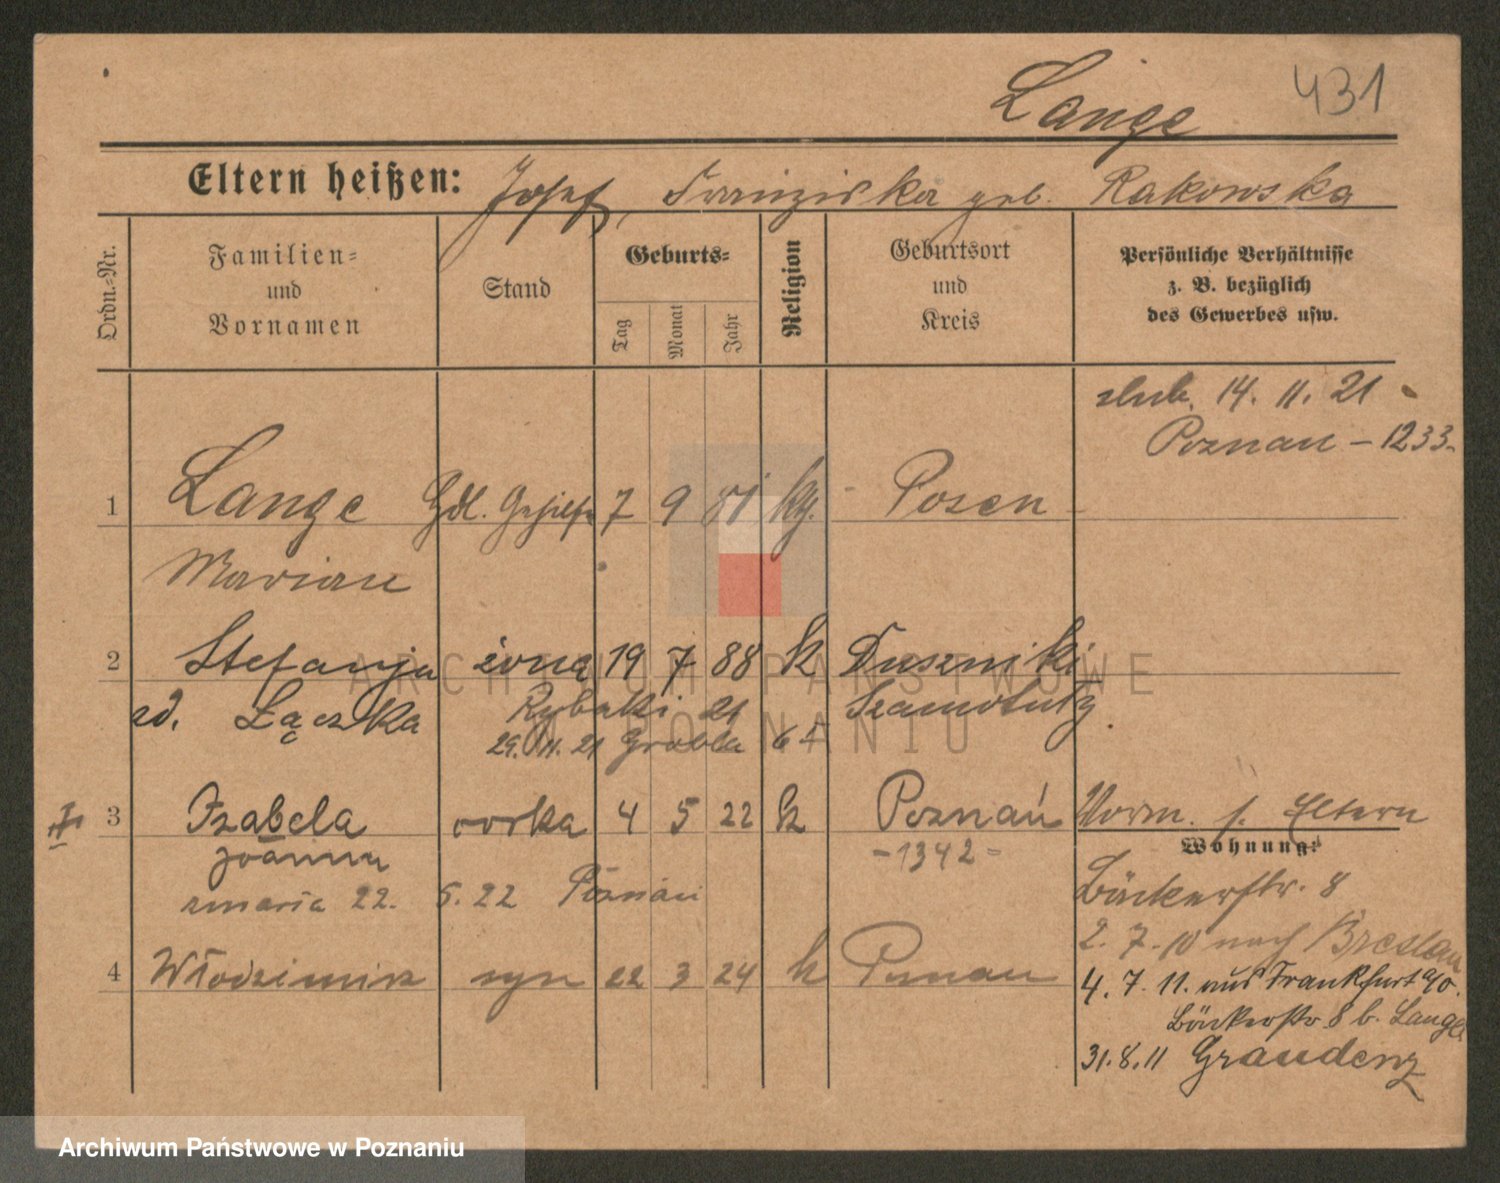 431
Lange
Eltern heißen: Josef, Franziska geb. Rakowska
Ordn.-Nr.
Familien- und Vornamen
Stand
Geburts-
Tag
Monat
Jahr
Religion
Geburtsort und Kreis
Persönliche Verhältnisse z. B. bezüglich des Gewerbes usw.
ślub. 14. 11. 21
Poznań – 1233
1 Lange Hdl. Gehilfe 7 9 81 kth. Posen
Marian
2 Stefanja żona 19 7 88 k Duszniki
zd. Łączka Rybaki 21 Szamotuły
29. 11. 21 Grobla 6
3 Izabela córka 4 5 22 k Poznań Vorm. s. Eltern
Joanna -1342-
Wohnung:
zmarła 22. 5. 22 Poznań
Bäckerstr. 8
2. 7. 10 nach Breslau
4 Włodzimirz syn 22 3 24 k Poznań
4. 7. 11. aus Frankfurt a/O.
Bäckerstr. 8 b. Lange
31. 8. 11 Graudenz
ARCHIWUM PAŃSTWOWE
W POZNANIU
Archiwum Państwowe w Poznaniu